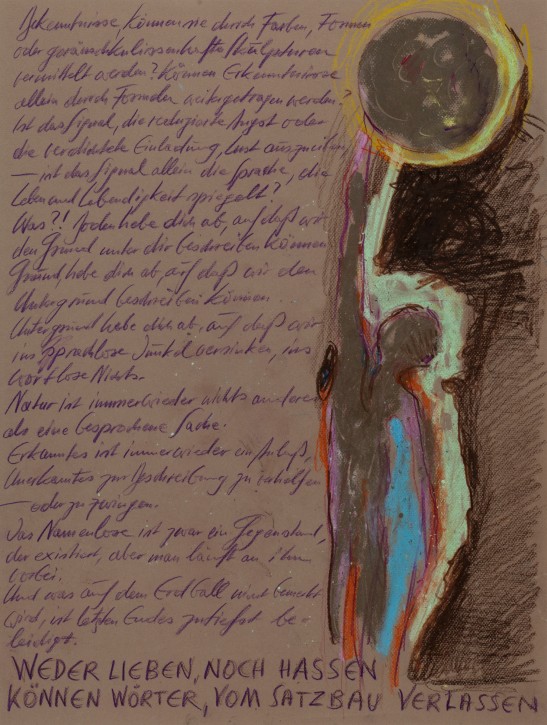 Erkenntnisse, können sie durch Farben, Formen
oder geräuschkulissenhafte Skulpturen
vermittelt werden? Können Erkenntnisse
allein durch Formeln weitergetragen werden?
Ist das Signal, die reduzierte Angst oder
die verdichtete Einladung, Lust auszuteilen,
– ist das Signal allein die Sprache, die
Leben und Lebendigkeit spiegelt?
Was?! Boden hebe dich ab, auf daß wir
den Grund unter dir beschreiben können
Grund, hebe dich ab, auf daß wir den
Untergrund beschreiben können.
Untergrund hebe dich ab, auf daß wir
ins sprachlose Dunkel versinken, ins
wortlose Nichts.
Natur ist immer wieder nichts anderes
als eine besprochene Sache.
Erkanntes ist immer wieder ein Anlaß,
Unerkanntes zur Beschreibung zu verhelfen
– oder zu zwingen.
Das Namenlose ist zwar ein Gegenstand,
der existiert, aber man läuft an ihm
vorbei.
Und was auf dem Erdball nicht bemerkt
wird, ist letzten Endes zutiefst be-
leidigt.
WEDER LIEBEN, NOCH HASSEN
KÖNNEN WÖRTER, VOM SATZBAU VERLASSEN